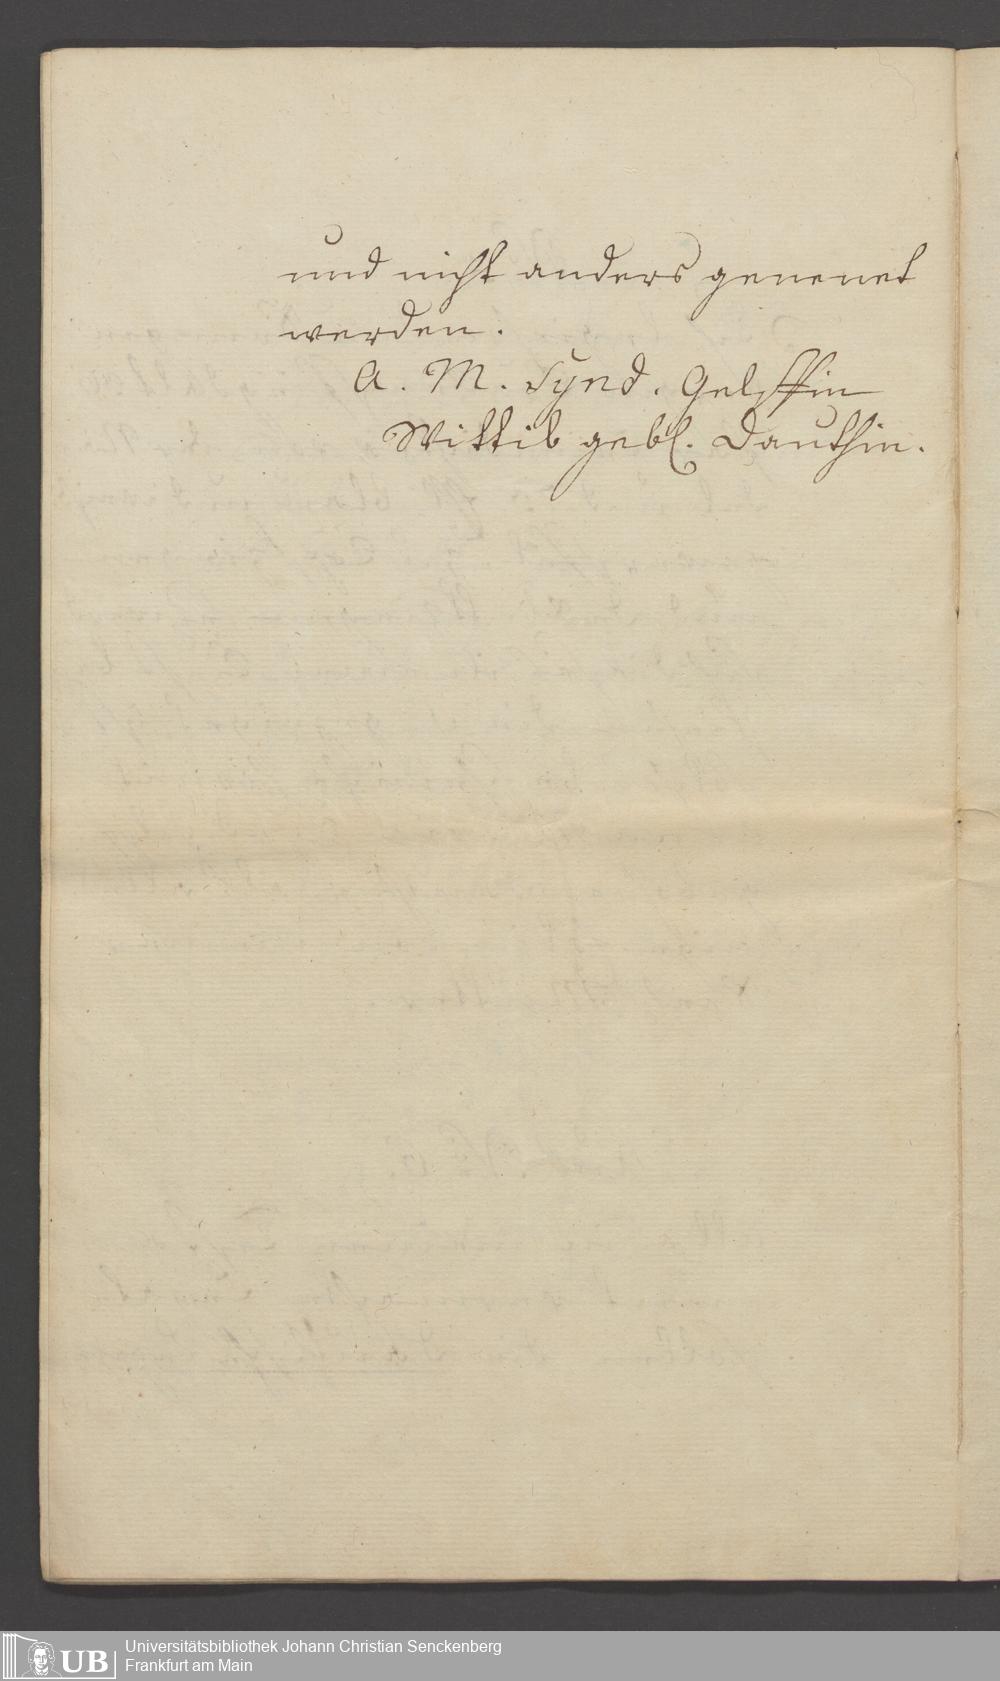 und nicht anders genenet
werden.
A. M. Synd. Gelffin
Wittib gebl. Dauthin.
UB
Universitätsbibliothek Johann Christian Senckenberg
Frankfurt am Main